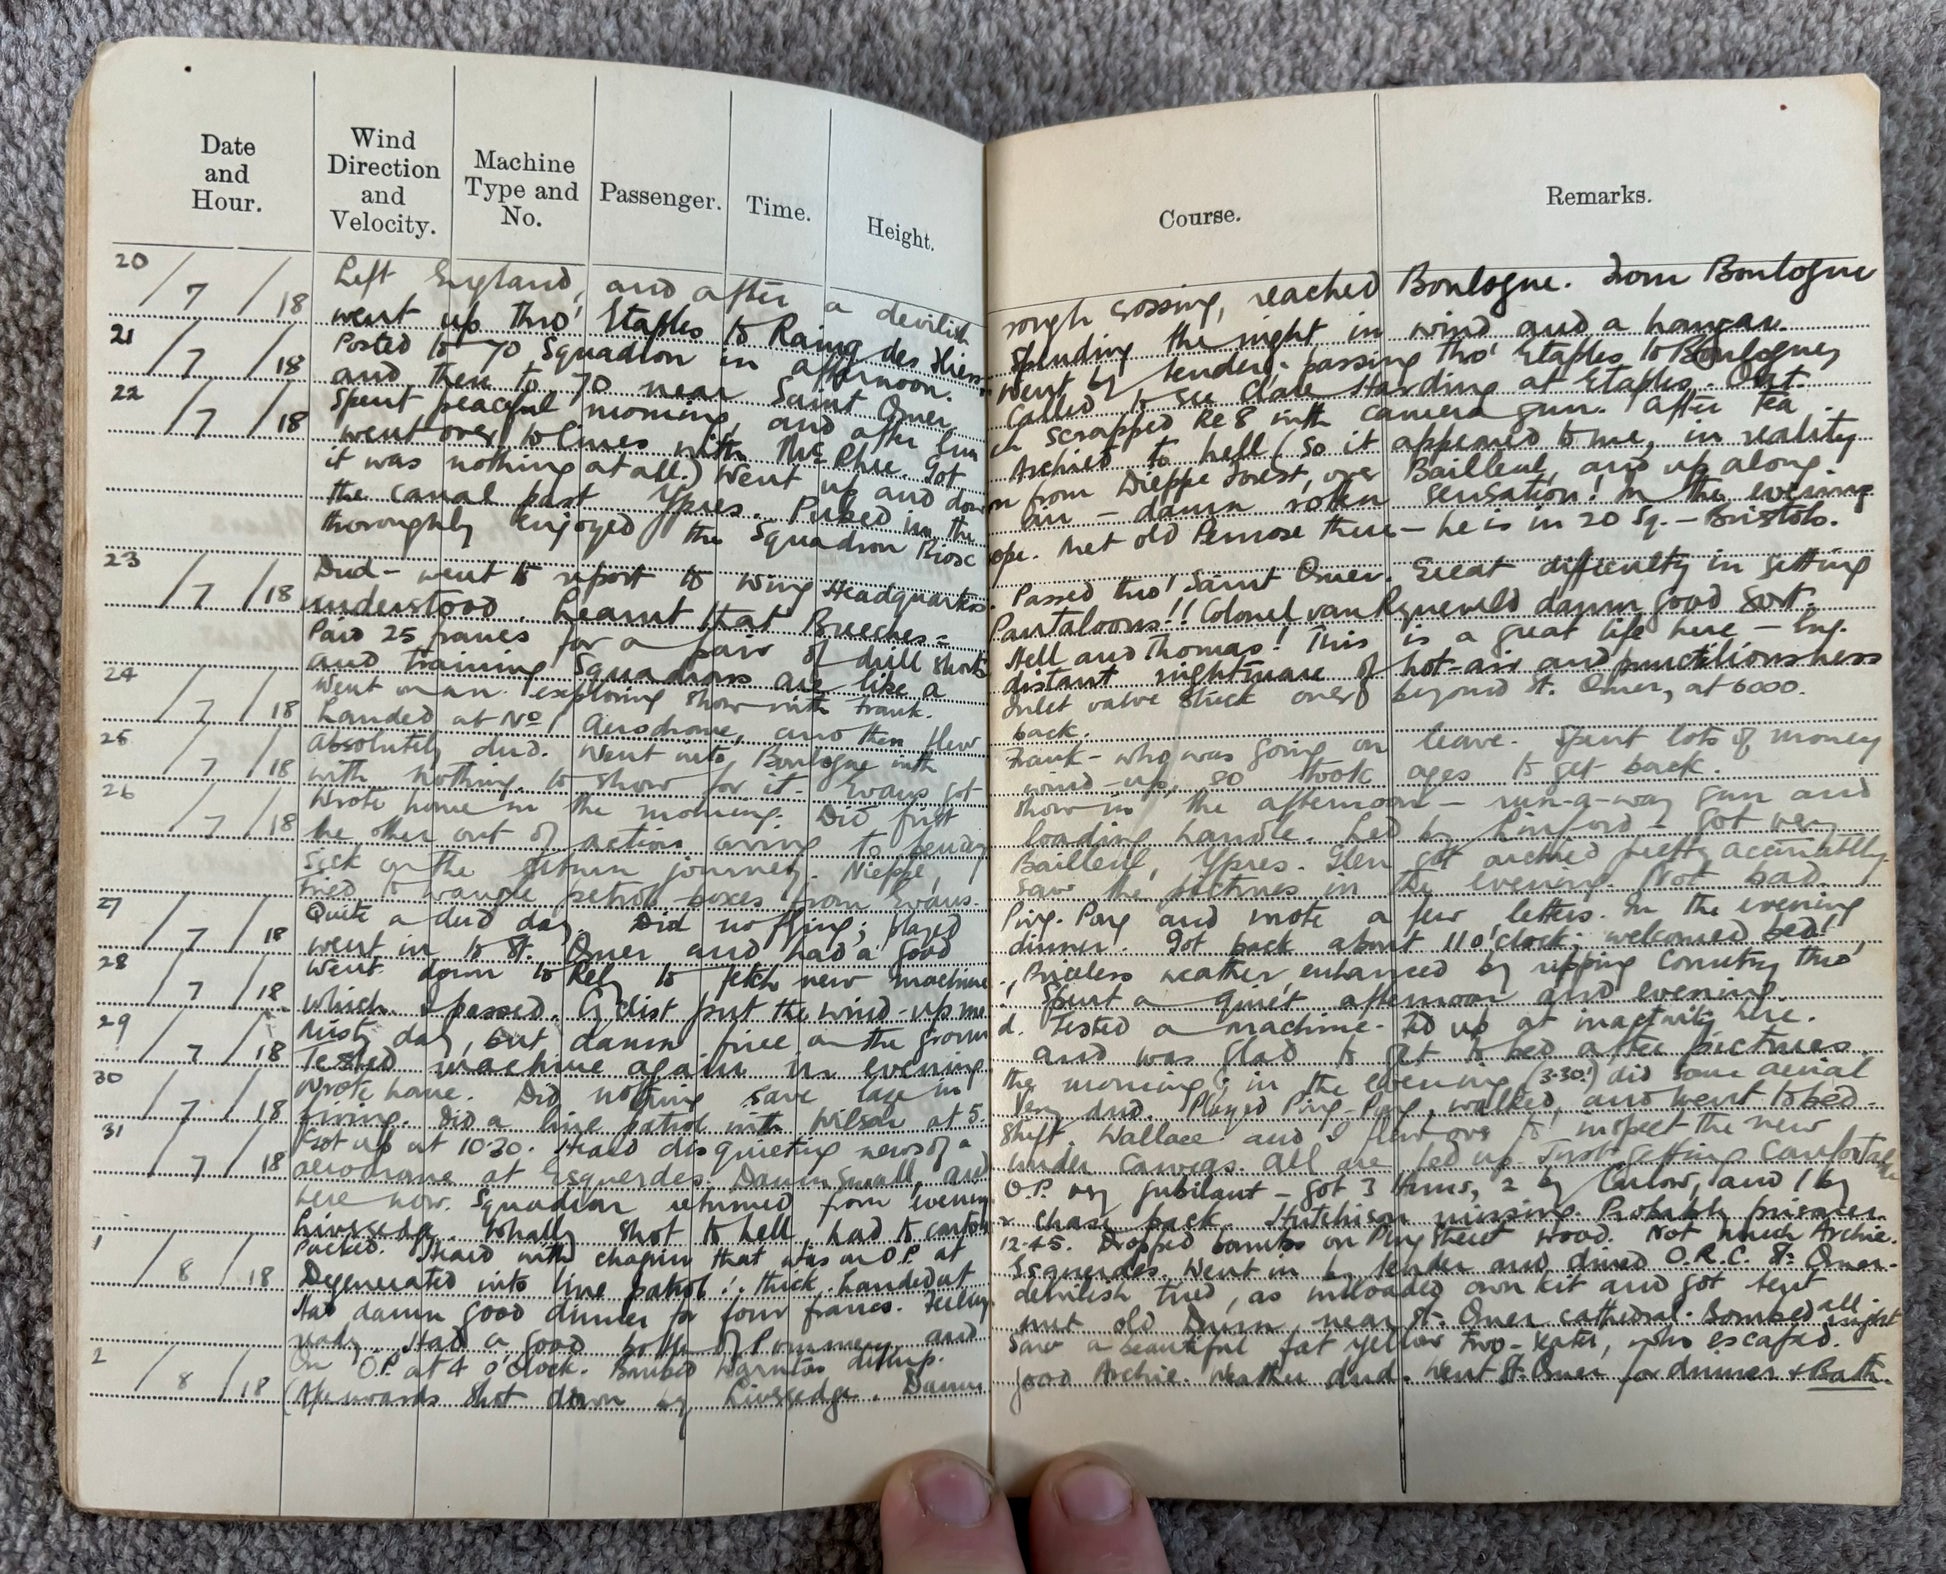 Date and Hour.
Wind Direction and Velocity.
Machine Type and No.
Passenger.
Time.
Height.
Course.
Remarks.
20/7/18 Left England, and after a devilish rough crossing, reached Boulogne. From Boulogne
went up thro' Etaples to Raing des spending the night in wind and a hangar.
21/7/18 Posted to 70 Squadron in afternoon. Went by tender, passing thro' Etaples to Boulogne,
and then to 70 near Saint Omer. Called to see Clare Harding at Etaples.
22/7/18 Spent peaceful morning, and after lun scrapped RE8 with camera gun. After tea
went over to lines with McPhee. Got Archied to hell (so it appeared to me, in reality
it was nothing at all.) Went up and down from Dieppe Forest, over Bailleul, and up along
the canal past Ypres. Puked in the air — damn rotten sensation! In the evening
thoroughly enjoyed the Squadron Biosc ope. Met old Penrose there — he is in 20 Sq. — Bristols.
23/7/18 Dud — went to report to Wing Headquarters. Passed thro' Saint Omer. Great difficulty in getting
understood. Learnt that Breeches = Pantaloons!! Colonel van Ryneveld damn good sort.
Paid 25 francs for a pair of drill shorts Hell and Thomas! This is a great life here — Eng.
and training Squadrons are like a distant nightmare of hot-air and punctiliousness
24/7/18 Went on an exploring show with Frank. Inlet valve stuck over beyond St. Omer, at 6000.
Landed at No 1 Aerodrome, and then flew back.
25/7/18 Absolutely dud. Went into Boulogne with Frank — who was going on leave. Spent lots of money
with nothing to show for it. Evans got wind-up, so took ages to get back.
26/7/18 Wrote home in the morning. Did first show in the afternoon — run-a-way gun and
the other out of action owing to bendy loading handle. Led by Linford — got very
sick on the return journey. Nieppe, Bailleul, Ypres. Glen got archied pretty accurately.
Tried to wangle petrol boxes from Evans. Saw the pictures in the evening. Not bad
27/7/18 Quite a dud day. Did no flying; played Ping-Pong and wrote a few letters. In the evening
went in to St. Omer and had a good dinner. Got back about 11 o'clock; welcomed bed!
28/7/18 Went down to Rely to fetch new machine, Priceless weather, enhanced by ripping country thro'
which I passed. Cyclist put the wind-up me! Spent a quiet afternoon and evening.
29/7/18 Misty day, but damn fine on the ground. Tested a machine. Fed up at inactivity here.
Tested machine again in evening and was glad to get to bed after pictures.
30/7/18 Wrote home. Did nothing save laze in the morning; in the evening (3.30!) did some aerial
firing. Did a line patrol with Wilson at 5. Very dud. Played Ping-Pong, walked, and went to bed.
31/7/18 Got up at 10.30. Heard disquieting news of a shift. Wallace and I flew over to inspect the new
aerodrome at Esquerdes. Damn small, and under canvas. All are fed up. Just getting comfortable
here now. Squadron returned from evening O.P. very jubilant — got 3 Huns, 2 by Carlow, and 1 by
Liversedge. Whally shot to hell, had to chase back. Hutchison missing. Probably prisoner.
1/8/18 Packed. Heard with chagrin that was on O.P. at 12.45. Dropped bombs on Ploegsteert Wood. Not much Archie.
Degenerated into line patrol!: thick. Landed at Esquerdes. Went in by tender and dined O.R.C. St. Omer.
Had damn good dinner for four francs. Feeling devilish tired, as unloaded own kit and got tent
ready. Had a good bottle of Pommery and met old Dunn near St. Omer cathedral. Bombed all night
2/8/18 On O.P. at 4 o'clock. Bombed Warneton dump. Saw a beautiful fat yellow two-seater, who escaped.
(Afterwards shot down by Liversedge. Damn good Archie. Weather dud. Went St. Omer for dinner & Bath.